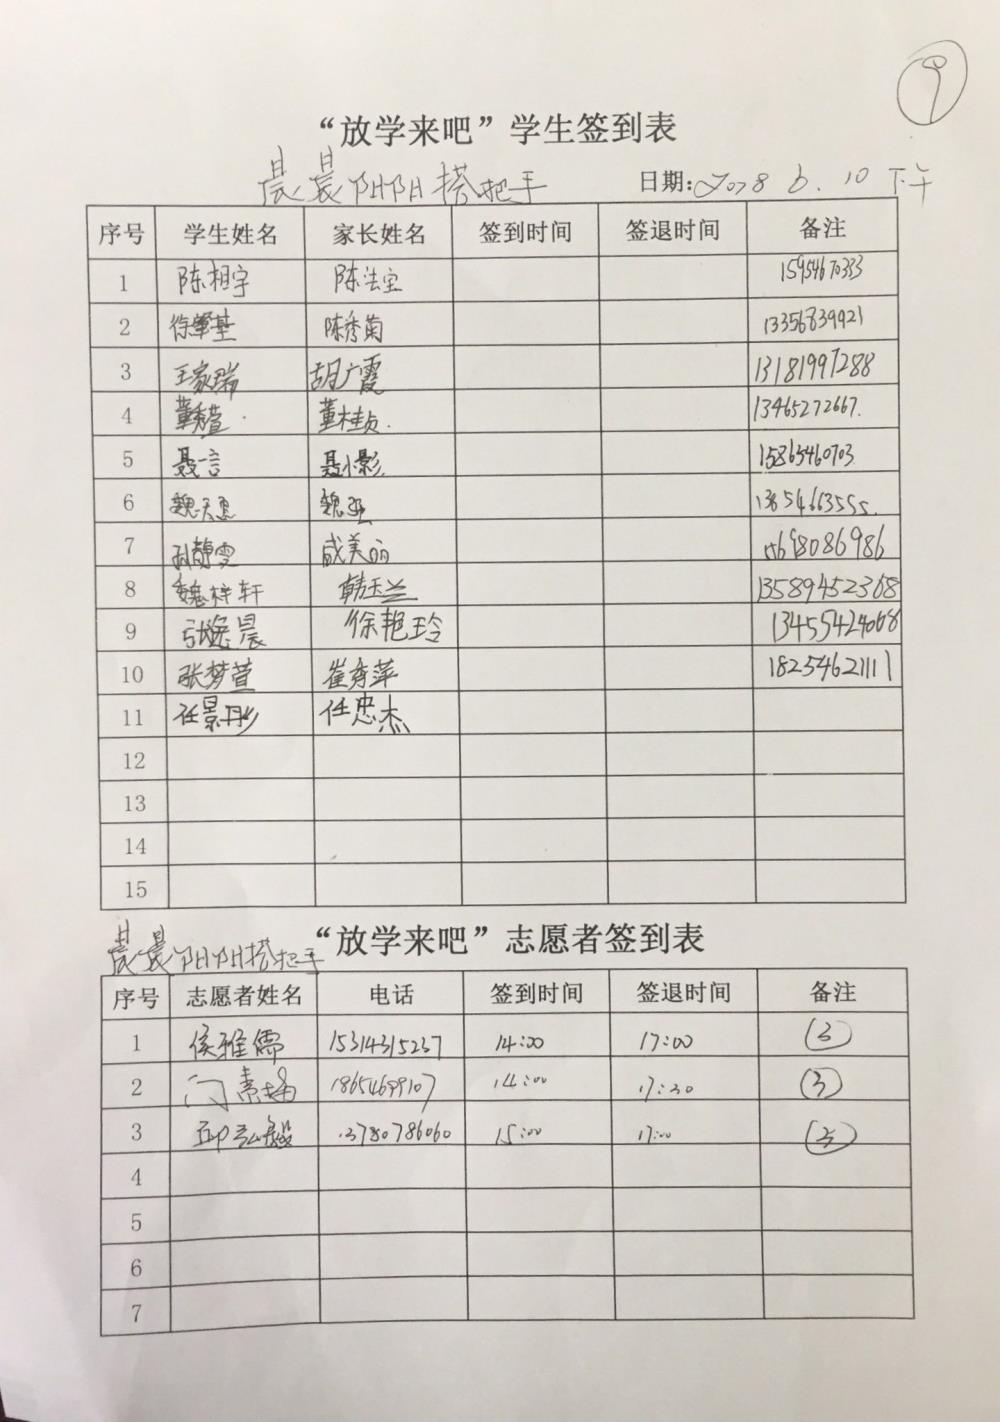 9
“放学来吧”学生签到表
晨晨阳阳搭把手 日期: 2018 6. 10 下午
序号 学生姓名 家长姓名 签到时间 签退时间 备注
1 陈相宇 陈法宝 15954670333
2 徐肇基 陈秀菊 13356839921
3 王家瑞 胡广霞 13181997288
4 董桂贞 13465272667
5 聂一言 聂小影 15865460703
6 魏天思 13854663555
7 孙静雯 咸美丽 15698086986
8 魏梓轩 韩玉兰 13589452368
9 张逸晨 徐艳玲 13455424068
10 张梦萱 崔秀萍 18254621111
11 任景彤 任忠杰
12
13
14
15
“放学来吧”志愿者签到表
晨晨阳阳搭把手
序号 志愿者姓名 电话 签到时间 签退时间 备注
1 侯雅儒 15314315237 14:00 17:00 (3)
2 18654699107 14:00 17:30 (3)
3 邱弘毅 13780786060 15:00 17:00 (3)
4
5
6
7